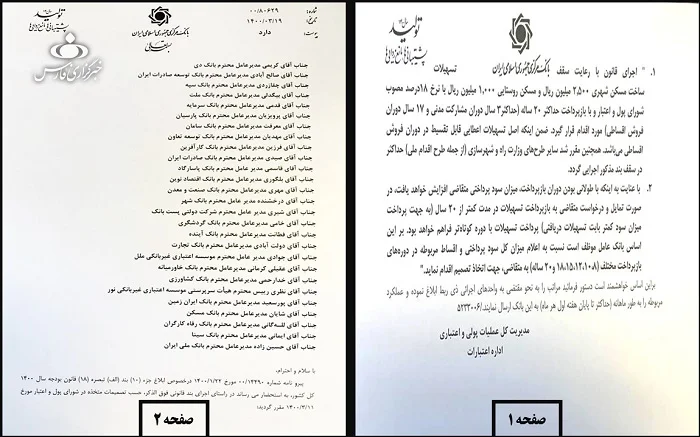 شماره: ۰۰/۸۰۶۲۹
تاریخ: ۱۴۰۰/۰۳/۱۹
پیوست: دارد
بانک مرکزی جمهوری اسلامی ایران
بسمه تعالی
خبرگزاری فارس
جناب آقای کریمی مدیرعامل محترم بانک دی
جناب آقای صالح آبادی مدیرعامل محترم بانک توسعه صادرات ایران
جناب آقای چقازردی مدیرعامل محترم بانک سپه
جناب آقای بیگدلی مدیرعامل محترم بانک ملت
جناب آقای قدمی مدیرعامل محترم بانک سرمایه
جناب آقای پرویزیان مدیرعامل محترم بانک پارسیان
جناب آقای معرفت مدیرعامل محترم بانک سامان
جناب آقای مهدیان مدیرعامل محترم بانک توسعه تعاون
جناب آقای فرزین مدیرعامل محترم بانک کارآفرین
جناب آقای صیدی مدیرعامل محترم بانک صادرات ایران
جناب آقای قاسمی مدیرعامل محترم بانک پاسارگاد
جناب آقای بلگوری مدیرعامل محترم بانک اقتصاد نوین
جناب آقای مهری مدیرعامل محترم بانک صنعت و معدن
جناب آقای درخشنده مدیر عامل محترم بانک شهر
جناب آقای شیری مدیر عامل محترم شرکت دولتی پست بانک
جناب آقای خامی مدیرعامل محترم بانک گردشگری
جناب آقای فطانت مدیرعامل محترم بانک آینده
جناب آقای دولت آبادی مدیرعامل محترم بانک تجارت
جناب آقای جوادی مدیر عامل محترم موسسه اعتباری غیربانکی ملل
جناب آقای عقیلی کرمانی مدیرعامل محترم بانک خاورمیانه
جناب آقای خدارحمی مدیرعامل محترم بانک کشاورزی
جناب آقای نظری رییس محترم هیأت سرپرستی موسسه اعتباری غیربانکی نور
جناب آقای پورسعید مدیرعامل محترم بانک ایران زمین
جناب آقای شایان مدیرعامل محترم بانک مسکن
جناب آقای لله‌گانی مدیرعامل محترم بانک رفاه کارگران
جناب آقای ایمانی مدیرعامل محترم بانک سینا
جناب آقای حسین زاده مدیرعامل محترم بانک ملی ایران
با سلام و احترام،
پیرو نامه شماره ۰۰/۱۳۴۹۰ مورخ ۱۴۰۰/۱/۲۲ درخصوص ابلاغ جزء (۱۰) بند (الف) تبصره (۱۸) قانون بودجه سال ۱۴۰۰
کل کشور، به استحضار می رساند در راستای اجرای بند قانونی فوق الذکر، حسب تصمیمات متخذه در شورای پول و اعتبار مورخ
۱۴۰۰/۳/۱۱ مقرر گردید:
صفحه ۲
تولید
پشتیبانی‌ها، مانع‌زدایی‌ها
بانک مرکزی جمهوری اسلامی ایران
۱. " اجرای قانون با رعایت سقف تسهیلات
ساخت مسکن شهری ۲،۵۰۰ میلیون ریال و مسکن روستایی ۱،۰۰۰ میلیون ریال با نرخ ۱۸درصد مصوب
شورای پول و اعتبار و با بازپرداخت حداکثر ۲۰ ساله (حداکثر۳ سال دوران مشارکت مدنی و ۱۷ سال دوران
فروش اقساطی) مورد اقدام قرار گیرد. ضمن اینکه اصل تسهیلات اعطایی قابل تقسیط در دوران فروش
اقساطی می‌باشد. همچنین مقرر شد سایر طرح‌های وزارت راه و شهرسازی (از جمله طرح اقدام ملی) حداکثر
در سقف بند مذکور اجرایی گردد.
۲. با عنایت به اینکه با طولانی بودن دوران بازپرداخت، میزان سود پرداختی متقاضی افزایش خواهد یافت، در
صورت تمایل و درخواست متقاضی به بازپرداخت تسهیلات در مدت کمتر از ۲۰ سال (به جهت پرداخت
میزان سود کمتر بابت تسهیلات دریافتی) پرداخت تسهیلات با دوره کوتاه‌تر فراهم خواهد بود. بر این
اساس بانک عامل موظف است نسبت به اعلام میزان کل سود پرداختی و اقساط مربوطه در دوره‌های
بازپرداخت مختلف (۸،۱۰،۱۲،۱۵،۱۸ و ۲۰ ساله) به متقاضی، جهت اتخاذ تصمیم اقدام نماید."
براین اساس خواهشمند است دستور فرمائید مراتب را به نحو مقتضی به واحدهای اجرائی ذی ربط ابلاغ نموده و عملکرد
مربوطه را به طور ماهانه (حداکثر تا پایان هفته اول هر ماه) به این بانک ارسال نمایند./۵۲۳۳۰۰۶
مدیریت کل عملیات پولی و اعتباری
اداره اعتبارات
صفحه ۱